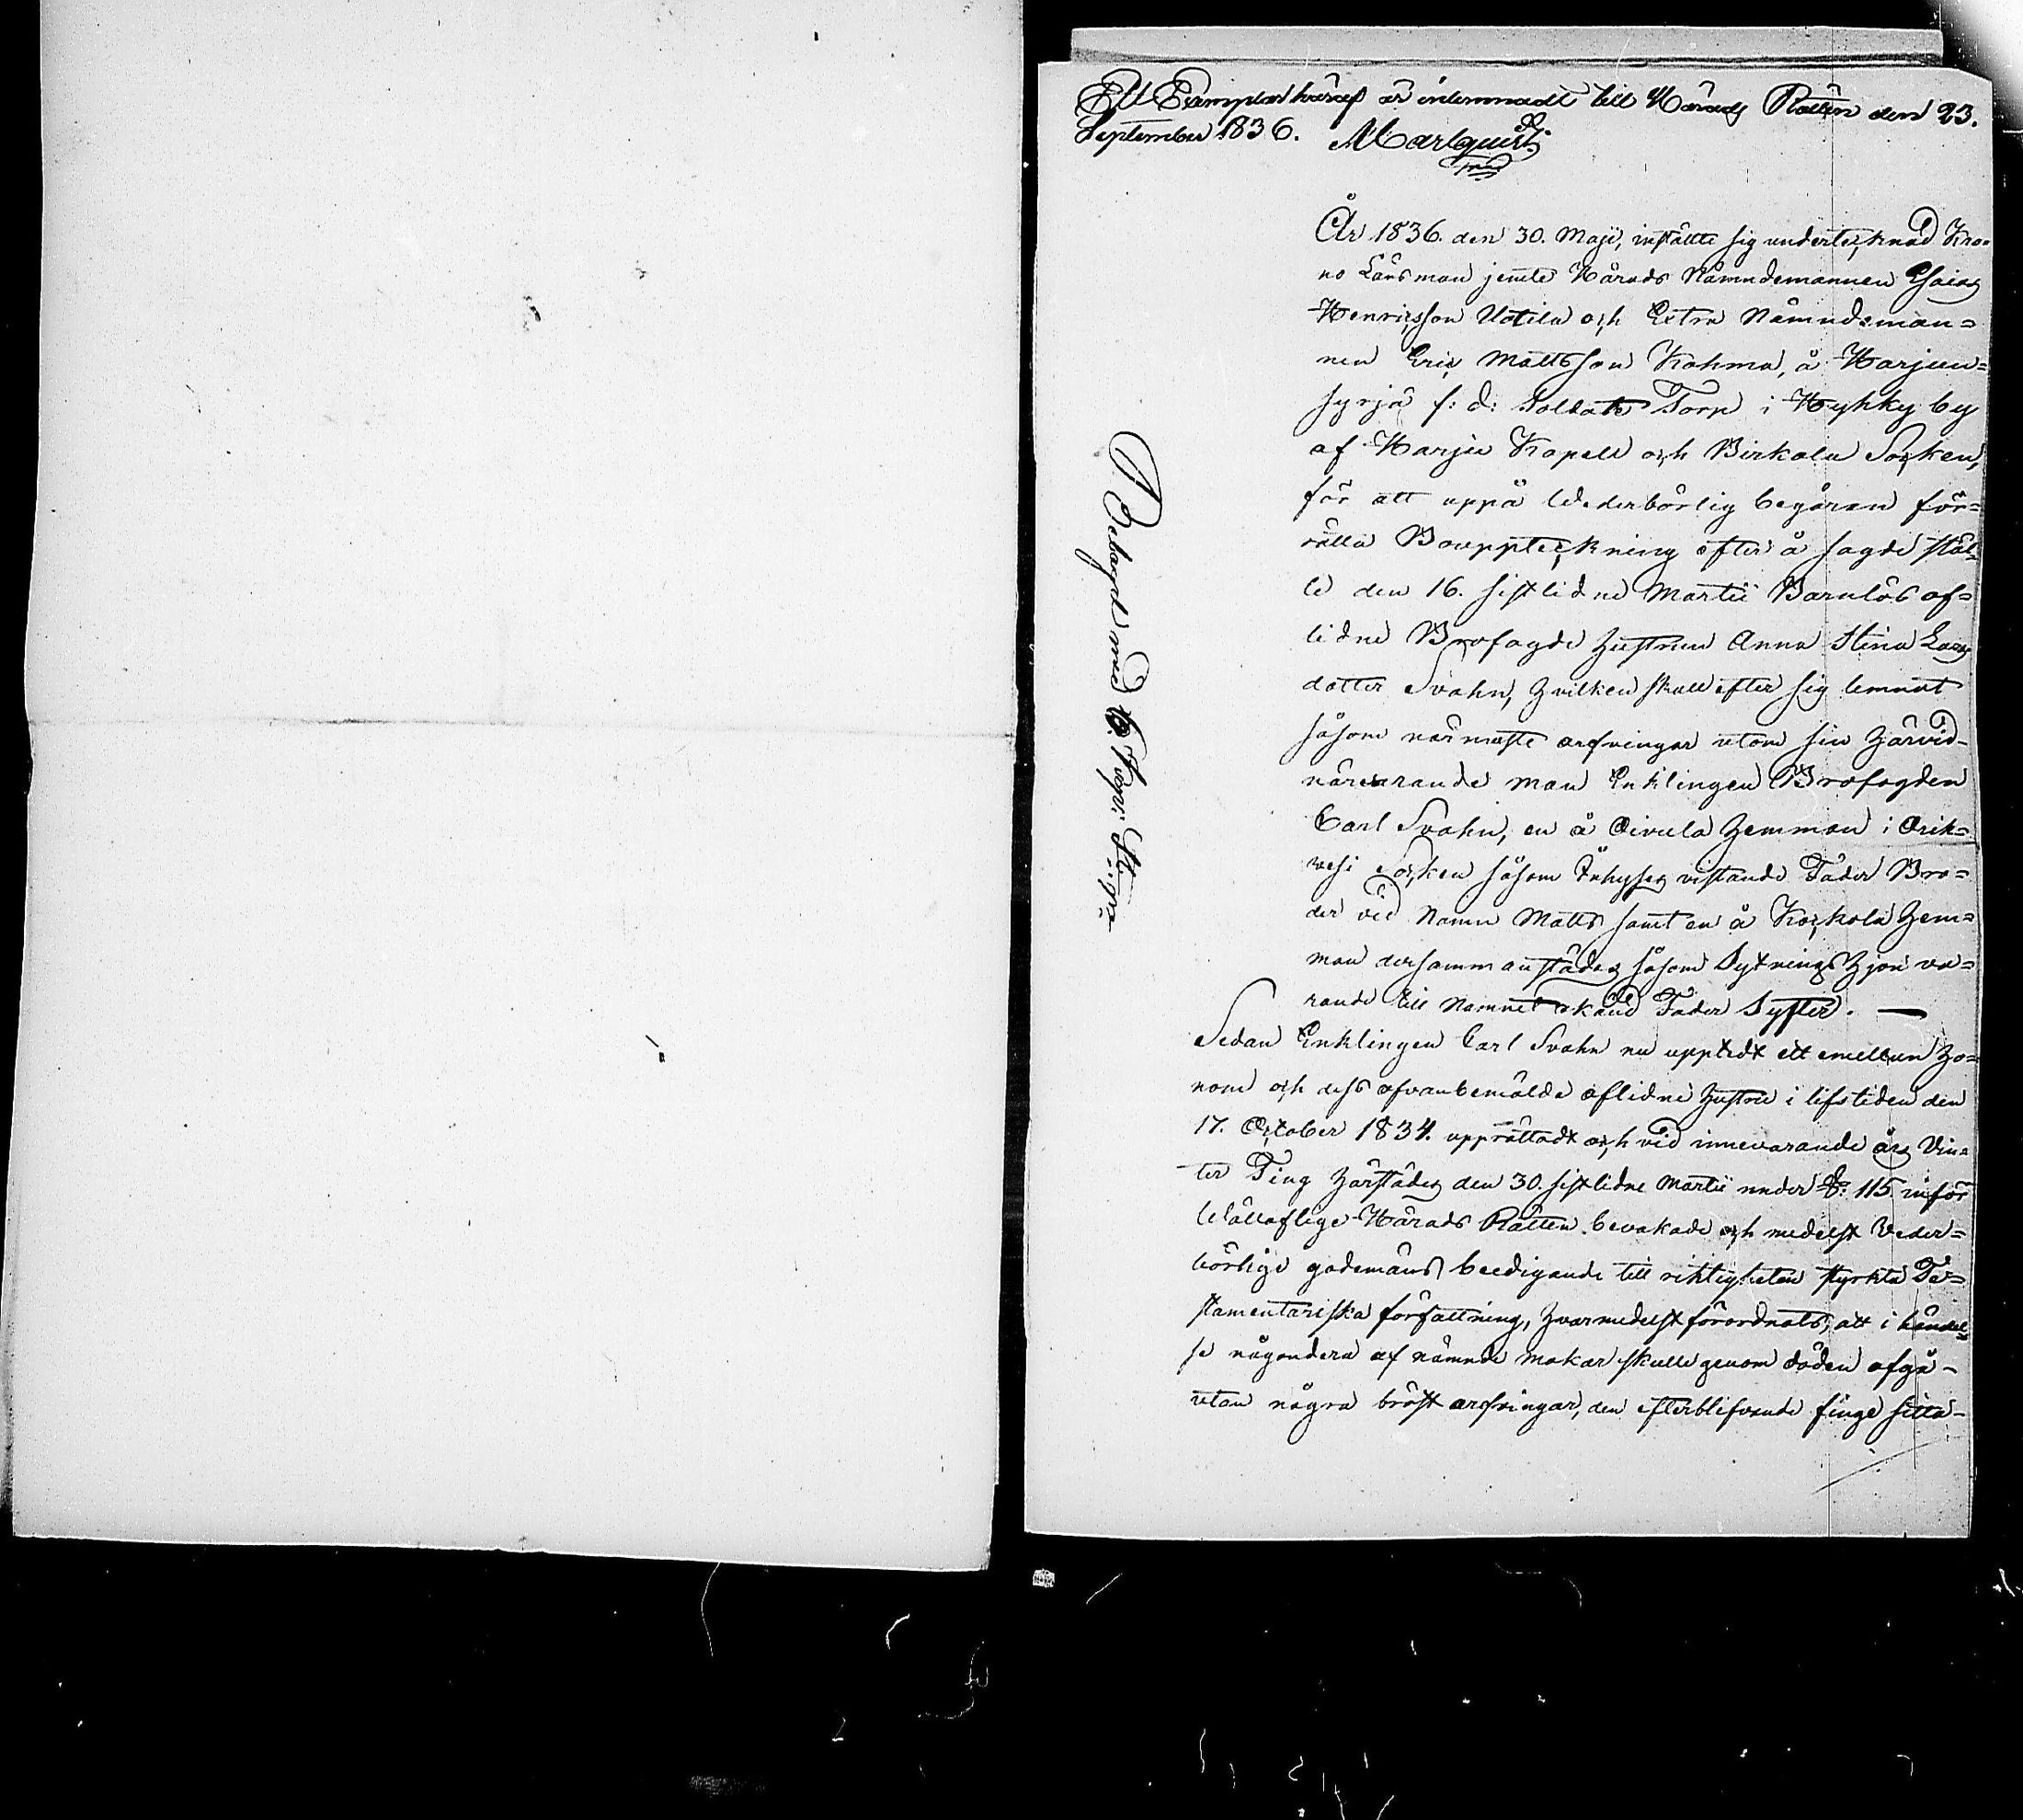 Ett Exemplar häraf är inlemnadt till Härads Rätten den 23.
September 1836. Marlquist
År 1836. den 30. Maji, instälte sig underteknad Kro-
no Länsman jemte Härads Nämndemannen Esaias
Henricsson Uotila och Extra Nämndeman-
nen Eric Mattsson Kahma, å Harjun-
syrjä f: d: Soldate Torp i Hyhky by
af Harju Kapell och Birkala Socken,
för att uppå Wederbörlig begäran för-
rätta Bouppteckning efter å sagde stäl-
le den 16. sistlidne Martii Barnlös af-
lidne Brofogde hustrun Anna Stina Lars
dotter Svahn, hvilken skall efter sig lemnat
såsom närmaste arfvingar utom sin härvid
närvarande man Enklingen Brofogden
Carl Svahn, en å Oivula hemman i Orih-
vesi Socken såsom Inhyses vistande Fader Bro-
der vid Namn Matts samt en å Kockola hem-
man dersammanstädes såsom Sytnings hjon va-
rande till Namnet okänd Fader Syster. —
Sedan Enklingen Carl Svahn nu uppteedt ett emellan ho-
nom och dess ofvanbemälde aflidne hustru i lifstiden den
17. October 1834. upprättadt och vid innevarande års Vin-
ter Ting härstädes den 30. sistlidne Martii under §: 115. inför
Wällofliga Härads Rätten bevakade och medelst Veder-
börlige godemäns beedigande till riktigheten styrkta Te-
stamentariska författning, hvarmedelst förordnats, att i händel-
se någondera af nämnde makar skulle genom döden afgå
utan några bröst arfvingar, den efterblifvande finge sitta
Belagd med 6. Kop: St: